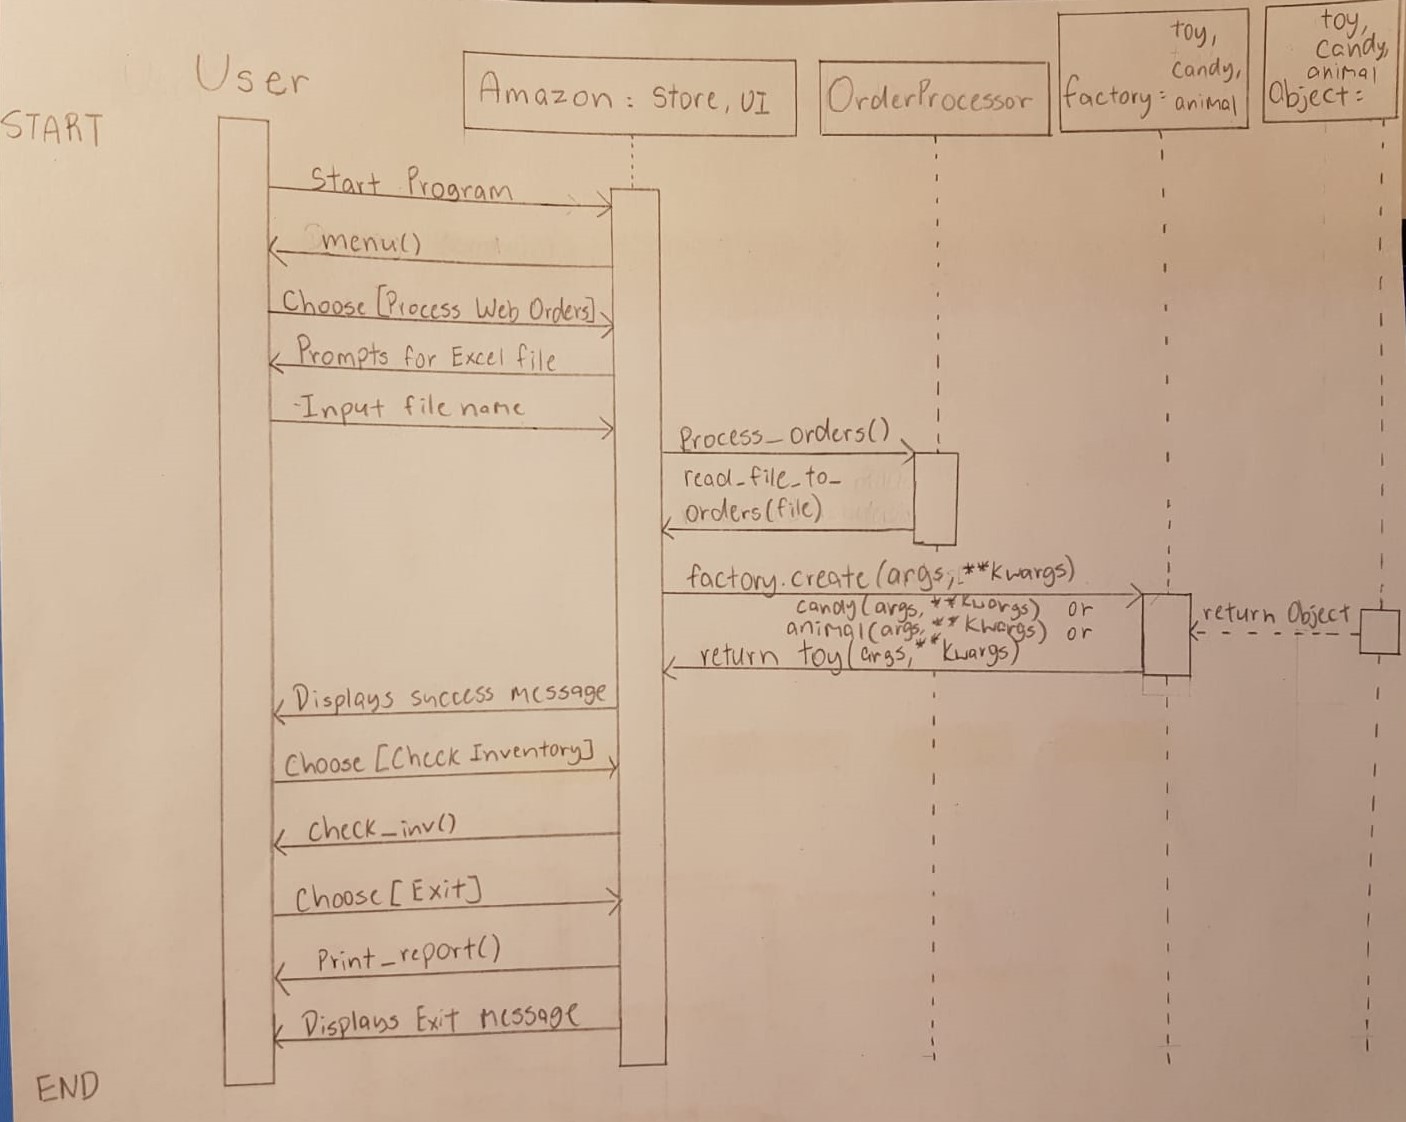 User
START
Amazon : Store, UI
OrderProcessor
toy,
candy,
factory: animal
toy,
candy,
animal
Object:
Start Program
menu()
Choose [Process Web Orders]
Prompts for Excel file
-Input file name
Process_orders()
read_file_to_
orders(file)
factory.create(args, **kwargs)
candy(args, **kwargs) or
animal(args, **kwargs) or
return toy(args, **kwargs)
return Object
Displays success message
Choose [Check Inventory]
Check_inv()
Choose [Exit]
Print_report()
Displays Exit message
END